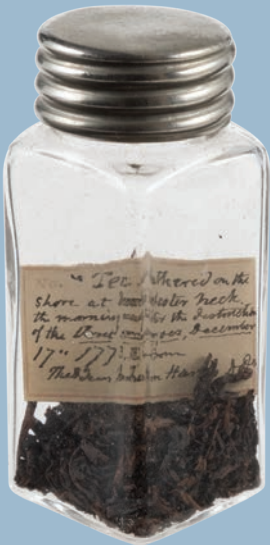 No. " Tea Gathered on the
shore at Dorchester Neck
the morning after the destruction
of the three cargoes, December
17" 1773. From
Harris